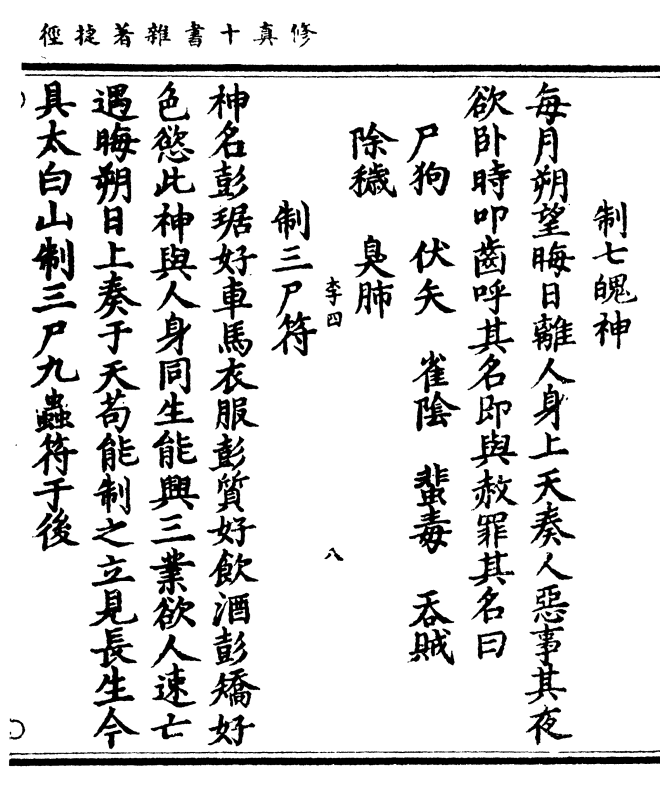 修真十書雜著捷徑
制七魄神
每月朔望晦日離人身上天奏人惡事其夜
欲卧時叩齒呼其名即與赦罪其名曰
尸狗 伏矢 雀陰 蜚毒 吞賊
除穢 臭肺
李四 八
制三尸符
神名彭琚好車馬衣服彭質好飲酒彭矯好
色慾此神與人身同生能興三業欲人速亡
遇晦朔日上奏于天苟能制之立見長生今
具太白山制三尸九蟲符于後